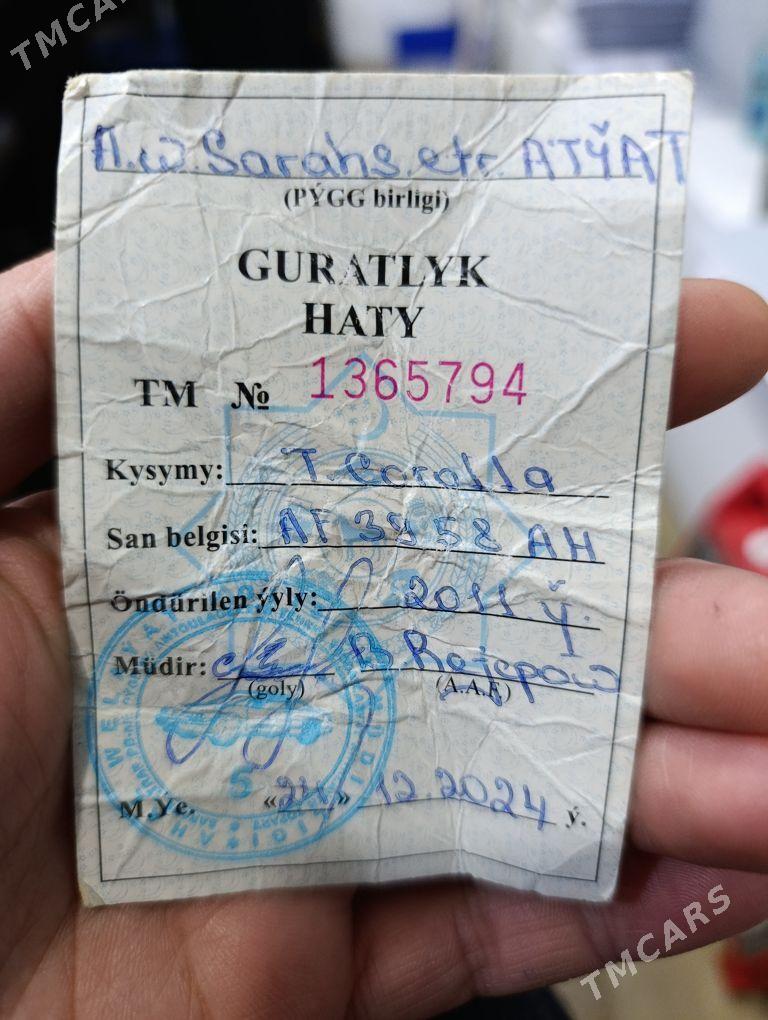 TMCARS
A.w. Sarahs. etr. ATÝAT
(PÝGG birligi)
GURATLYK
HATY
TM № 1365794
Kysymy: T. Corolla
San belgisi: AF 3958 AH
Öndürilen ýyly: 2011. Ý.
Müdir: B. Rejepow
(goly) (A.A.F.)
M.Ýe. «24» 12.2024 ý.
5
TMCARS